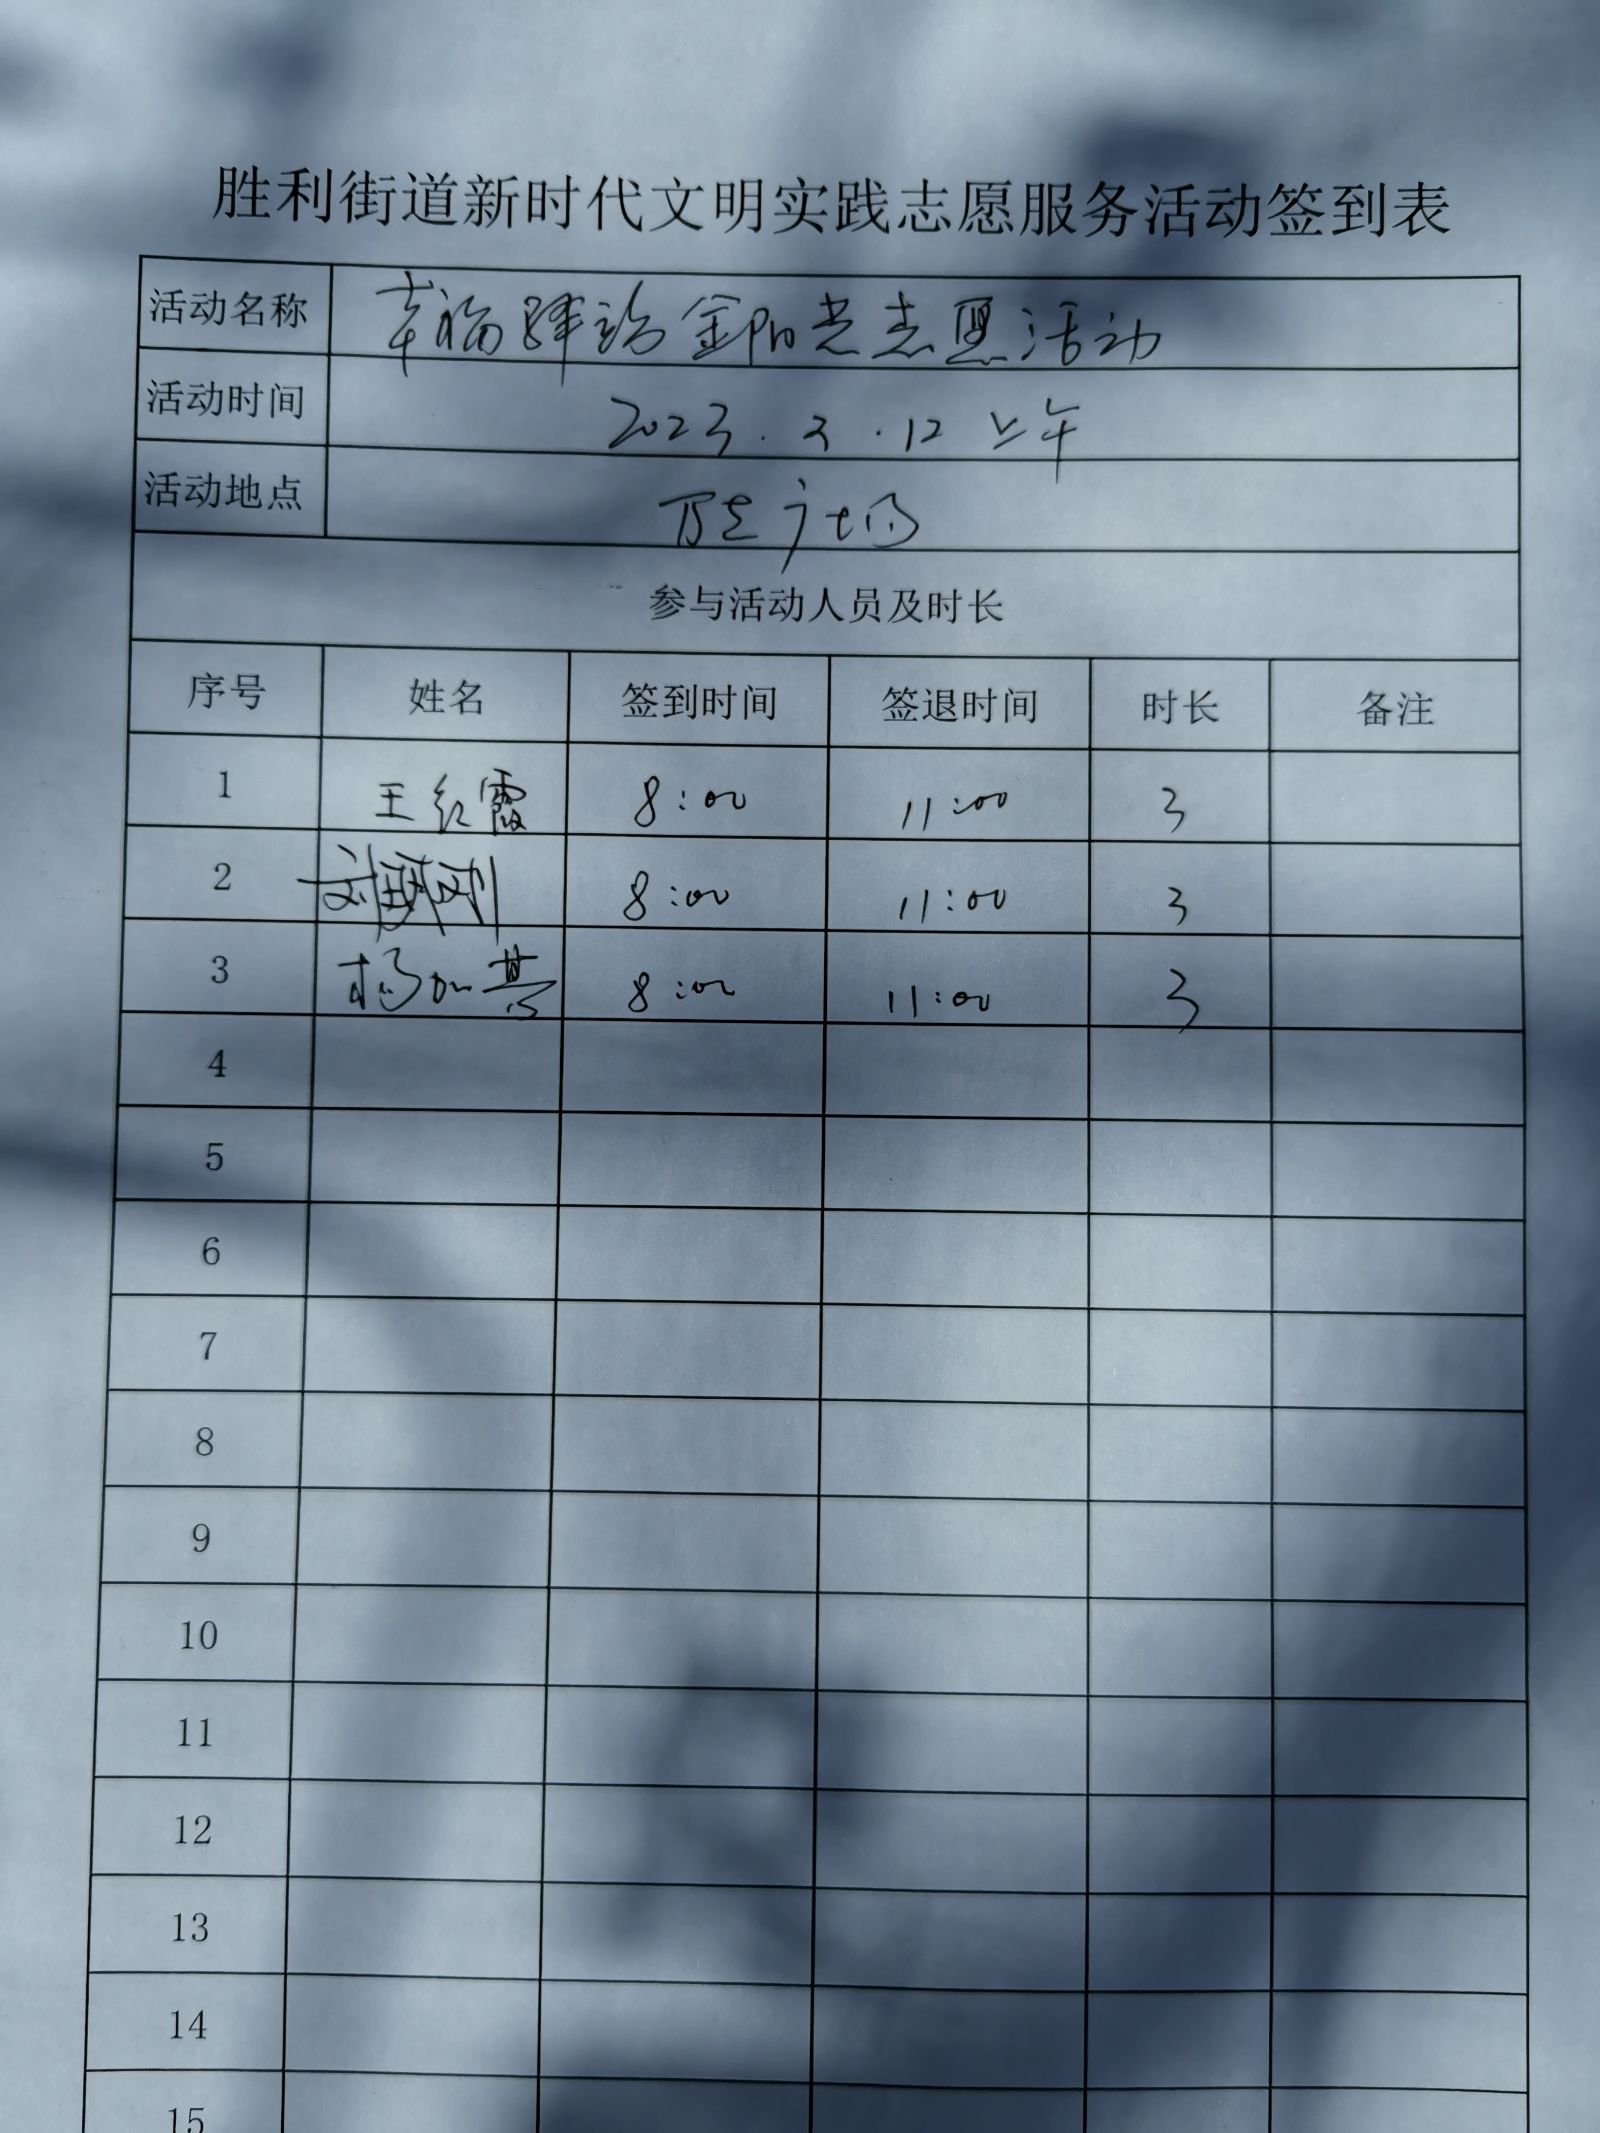 胜利街道新时代文明实践志愿服务活动签到表
活动名称 幸福驿站金阳光志愿活动
活动时间 2023.3.12 上午
活动地点 万达广场
参与活动人员及时长
序号 姓名 签到时间 签退时间 时长 备注
1 王红霞 8:00 11:00 3
2 刘 8:00 11:00 3
3 杨如意 8:00 11:00 3
4
5
6
7
8
9
10
11
12
13
14
15